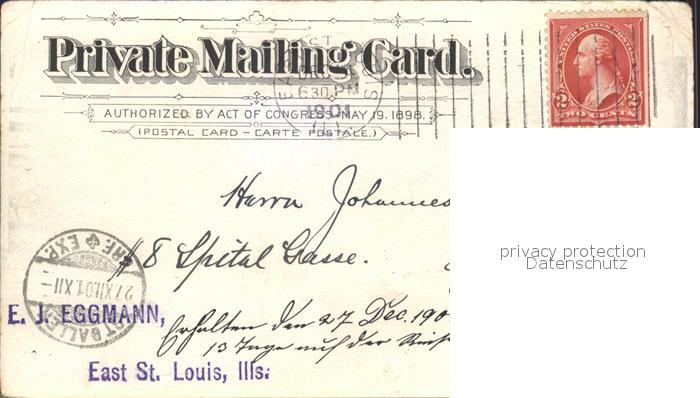 Private Mailing Card.
EAST ST
6 30 PM
1901
ILL.
AUTHORIZED BY ACT OF CONGRESS, MAY 19, 1898.
(POSTAL CARD - CARTE POSTALE.)
UNITED STATES POSTAGE
2 2
TWO CENTS
Herrn Johannes
# 8 Spital Gasse.
privacy protection
Datenschutz
EXP.
27.XII.01.XII-
E. J. EGGMANN,
Erhalten den 27 Dec. 190
13 Tage auf der Reise
East St. Louis, Ills.